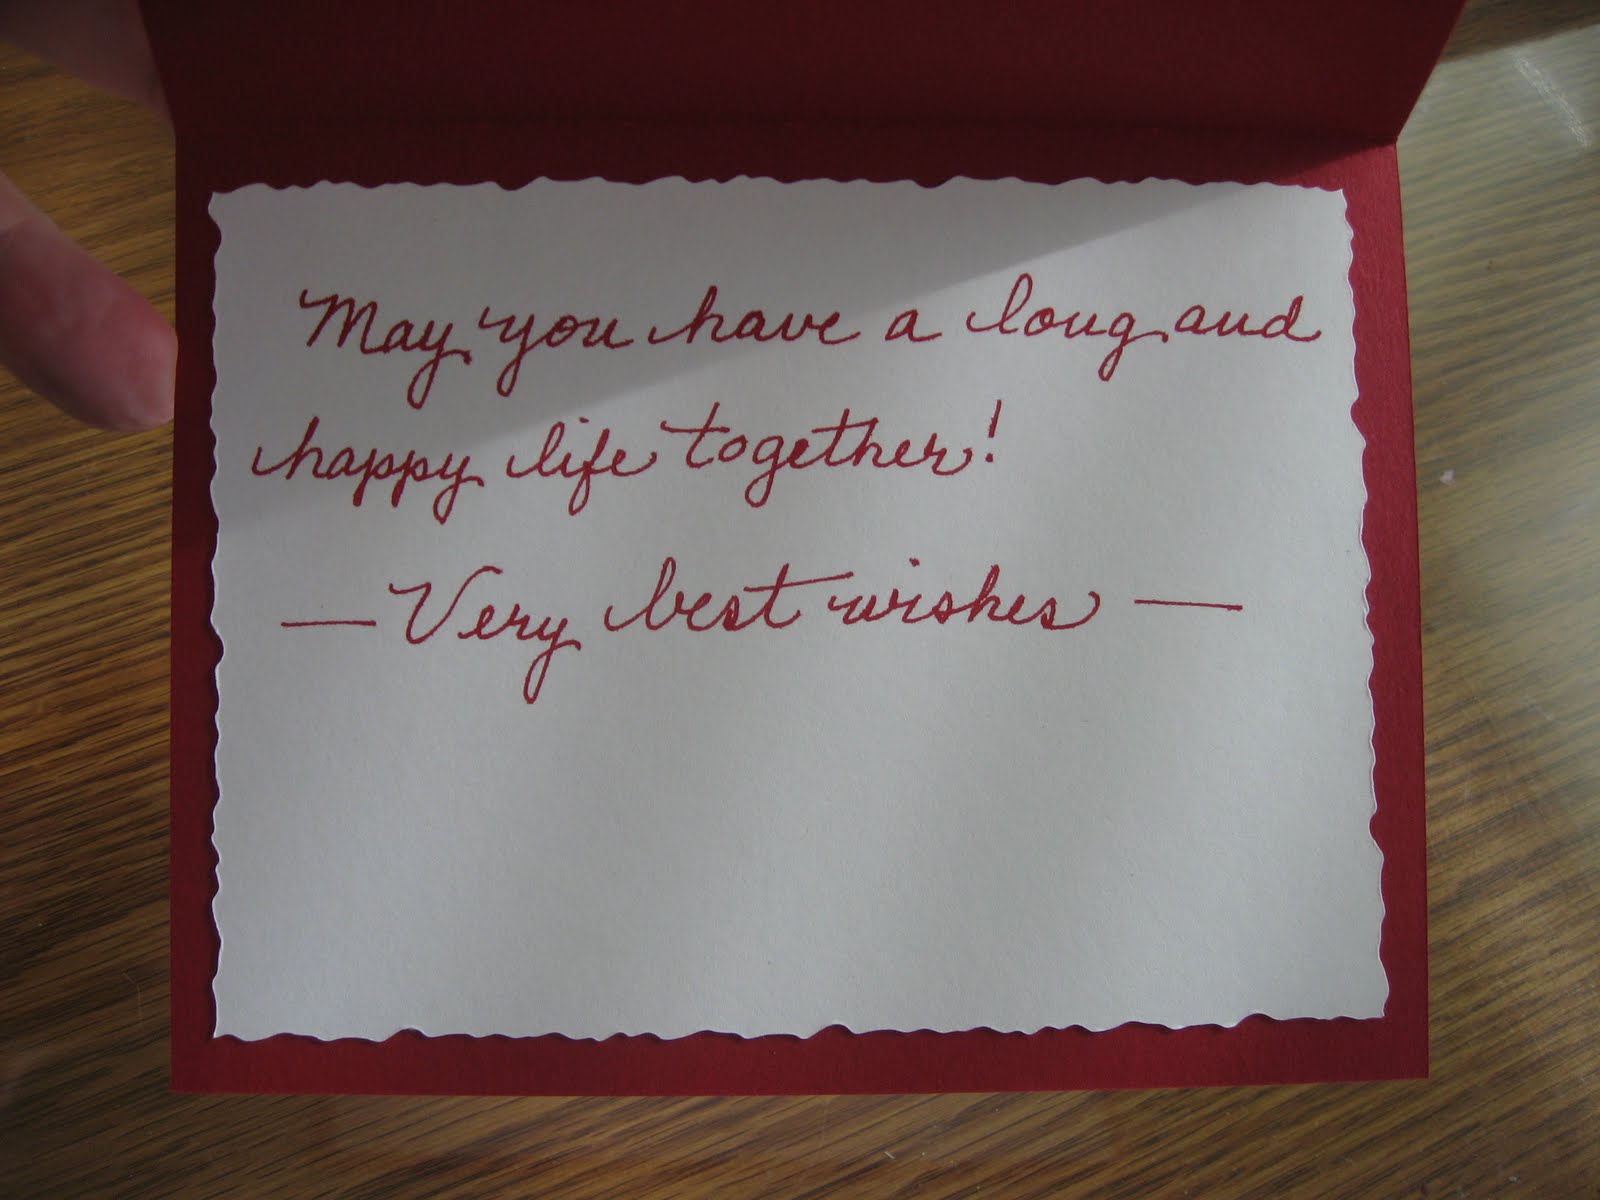 May you have a long and
happy life together!
— Very best wishes —